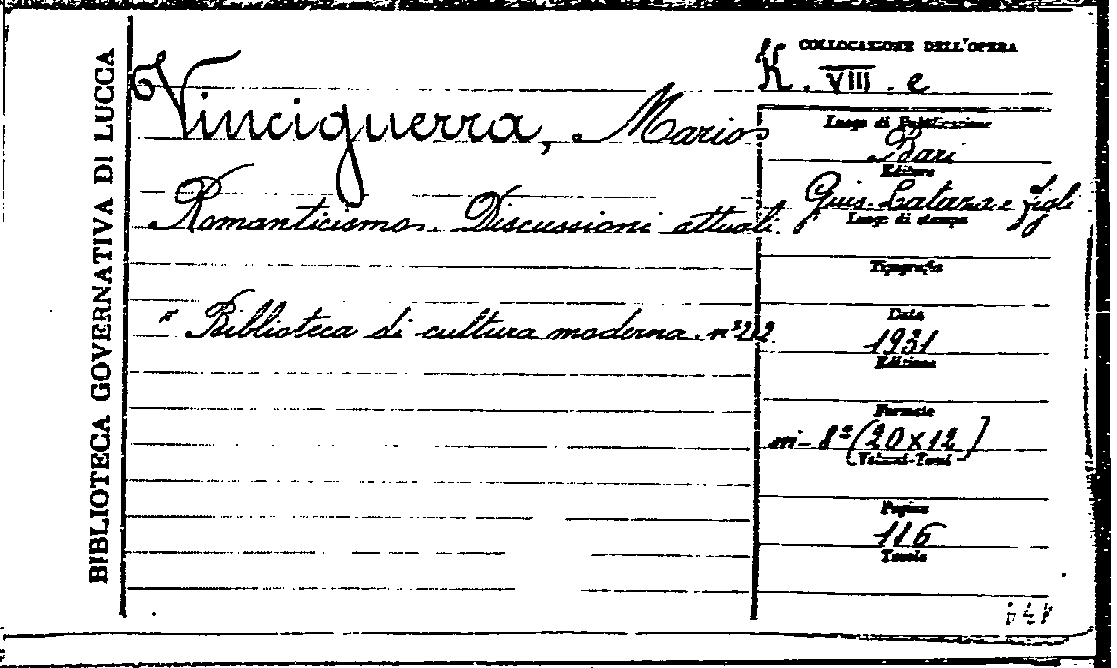 BIBLIOTECA GOVERNATIVA DI LUCCA
Vinciguerra, Mario
Romanticismo. Discussioni attuali.
" Biblioteca di cultura moderna. nº 212
COLLOCAZIONE DELL'OPERA
K. VIII. e
Luogo di Pubblicazione
Bari
Editore
Gius. Laterza e figli
Luogo di stampa
Tipografia
Data
1931
Edizione
Formato
in-8º (20x12)
Volumi-Tomi
Pagine
116
Tavole